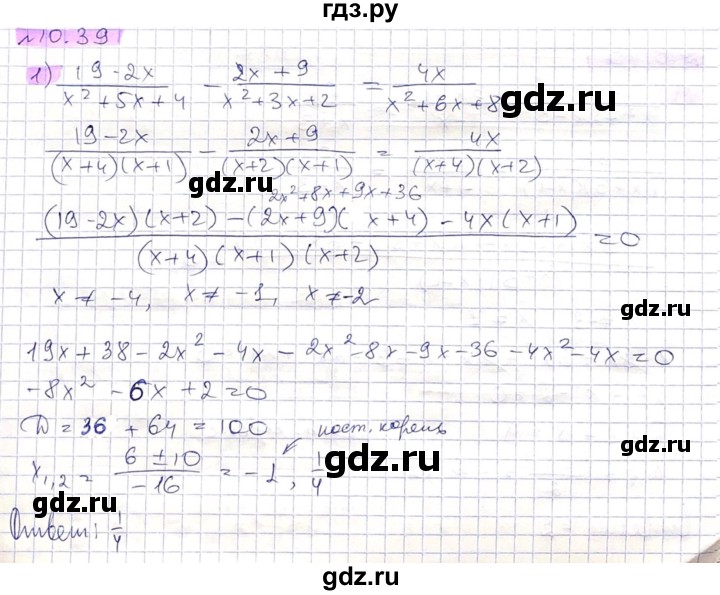 гдз.ру
№10.39
1) (19-2x)/(x²+5x+4) - (2x+9)/(x²+3x+2) = 4x/(x²+6x+8)
(19-2x)/((x+4)(x+1)) - (2x+9)/((x+2)(x+1)) = 4x/((x+4)(x+2))
gdz.ru
gdz.ru
2x²+8x+9x+36
((19-2x)(x+2)-(2x+9)(x+4)-4x(x+1))/((x+4)(x+1)(x+2)) =0
x≠-4, x≠-1, x≠-2
gdz.ru
gdz.ru
19x+38-2x²-4x-2x²-8x-9x-36-4x²-4x=0
-8x²-6x+2=0
D=36+64=100 пост. корень
gdz.ru
x1,2 = (6±10)/-16 = -1, 1/4
gdz.ru
Ответ: 1/4
gdz.ru
gdz.ru